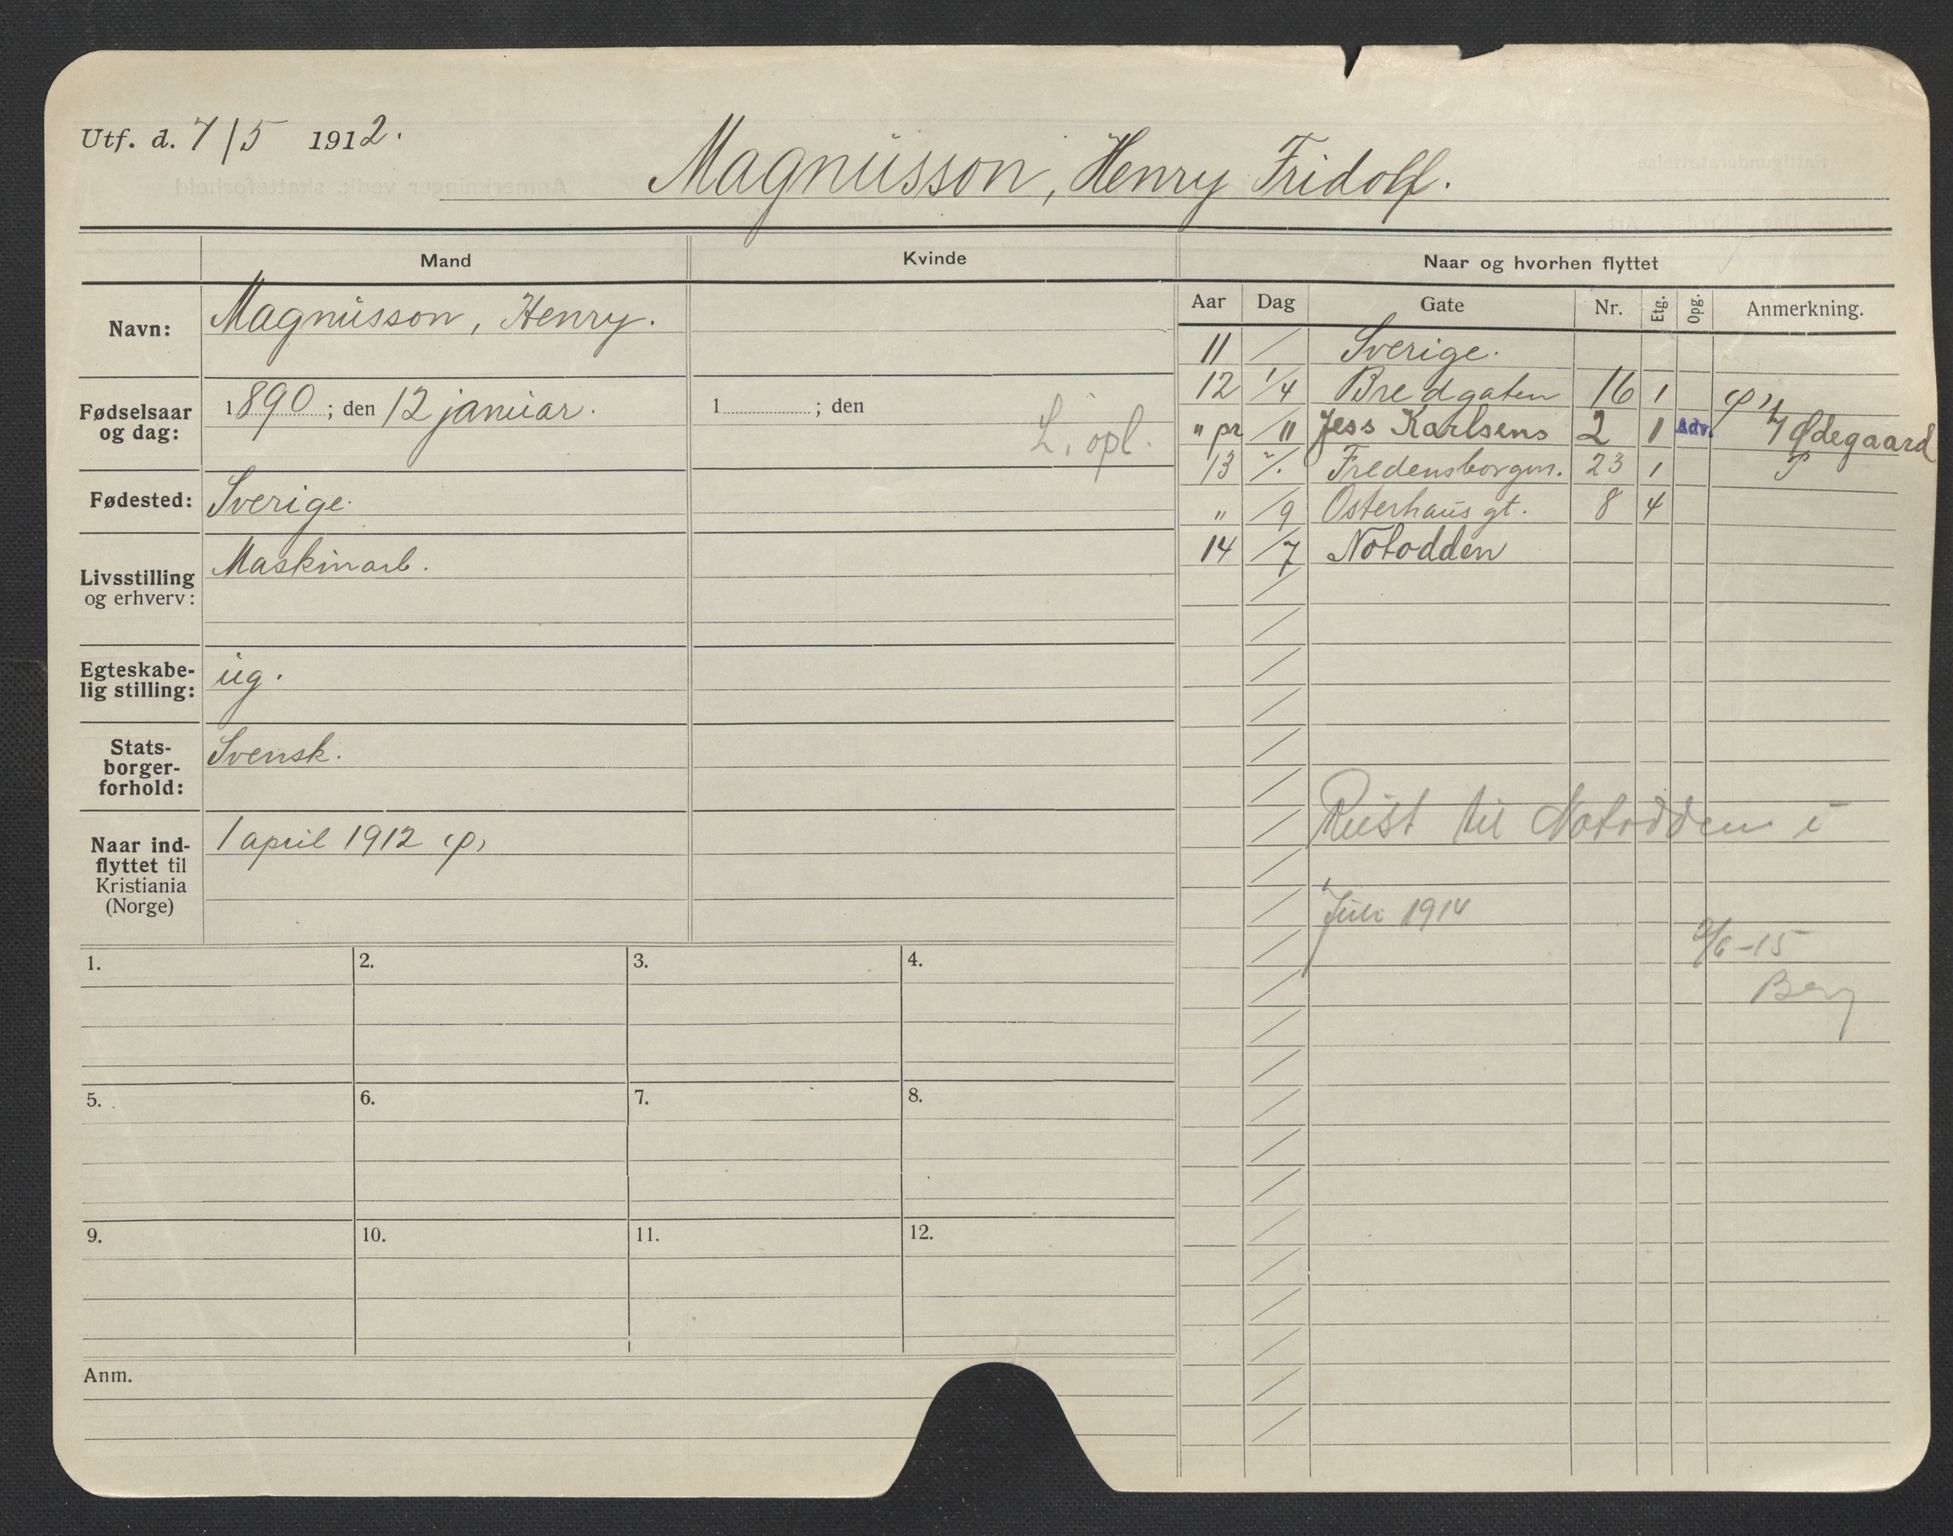 Utf. d. 7/5 1912.
Magnusson, Henry Fridolf.
Mand
Kvinde
Naar og hvorhen flyttet
Navn: Magnusson, Henry.
Fødselsaar og dag: 1890; den 12 januar.
1 ; den
L. opl.
Fødested: Sverige.
Livsstilling og erhverv: Maskinarb.
Egteskabe-
lig stilling: ug.
Stats-
borger-
forhold: Svensk.
Naar ind-
flyttet til
Kristiania
(Norge)
1 april 1912
1.
2.
3.
4.
5.
6.
7.
8.
9.
10.
11.
12.
Anm.
Aar Dag Gate Nr. Etg. Opg. Anmerkning.
11 / Sverige.
12 1/4 Bredgaten 16 1
" pr /11 Jess Karlsens 2 1 Adr. Ødegaard
13 Fredensborgvn. 23 1
" /9 Osterhaus gt. 8 4
14 /7 Notodden
Reist til Notodden i
Juli 1914
/6-15
Berg